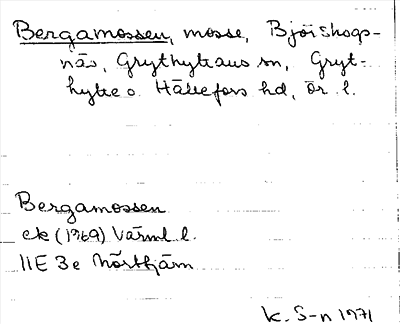 Bergamossen, mosse, Björskogs-
näs, Grythyttans sn, Gryt-
hytte o. Hällefors hd, Ör. l.
Bergamossen
ek (1969) Värml l.
11E 3e Mörttjärn
K. S-n 1971